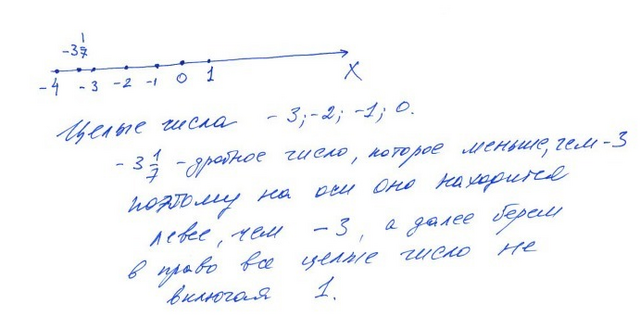 -3 1/7
-4 -3 -2 -1 0 1 X
Целые числа -3;-2;-1;0.
-3 1/7 - дробное число, которое меньше, чем -3
поэтому на оси оно находится
левее, чем -3, а далее берем
в право все целые число не
включая 1.